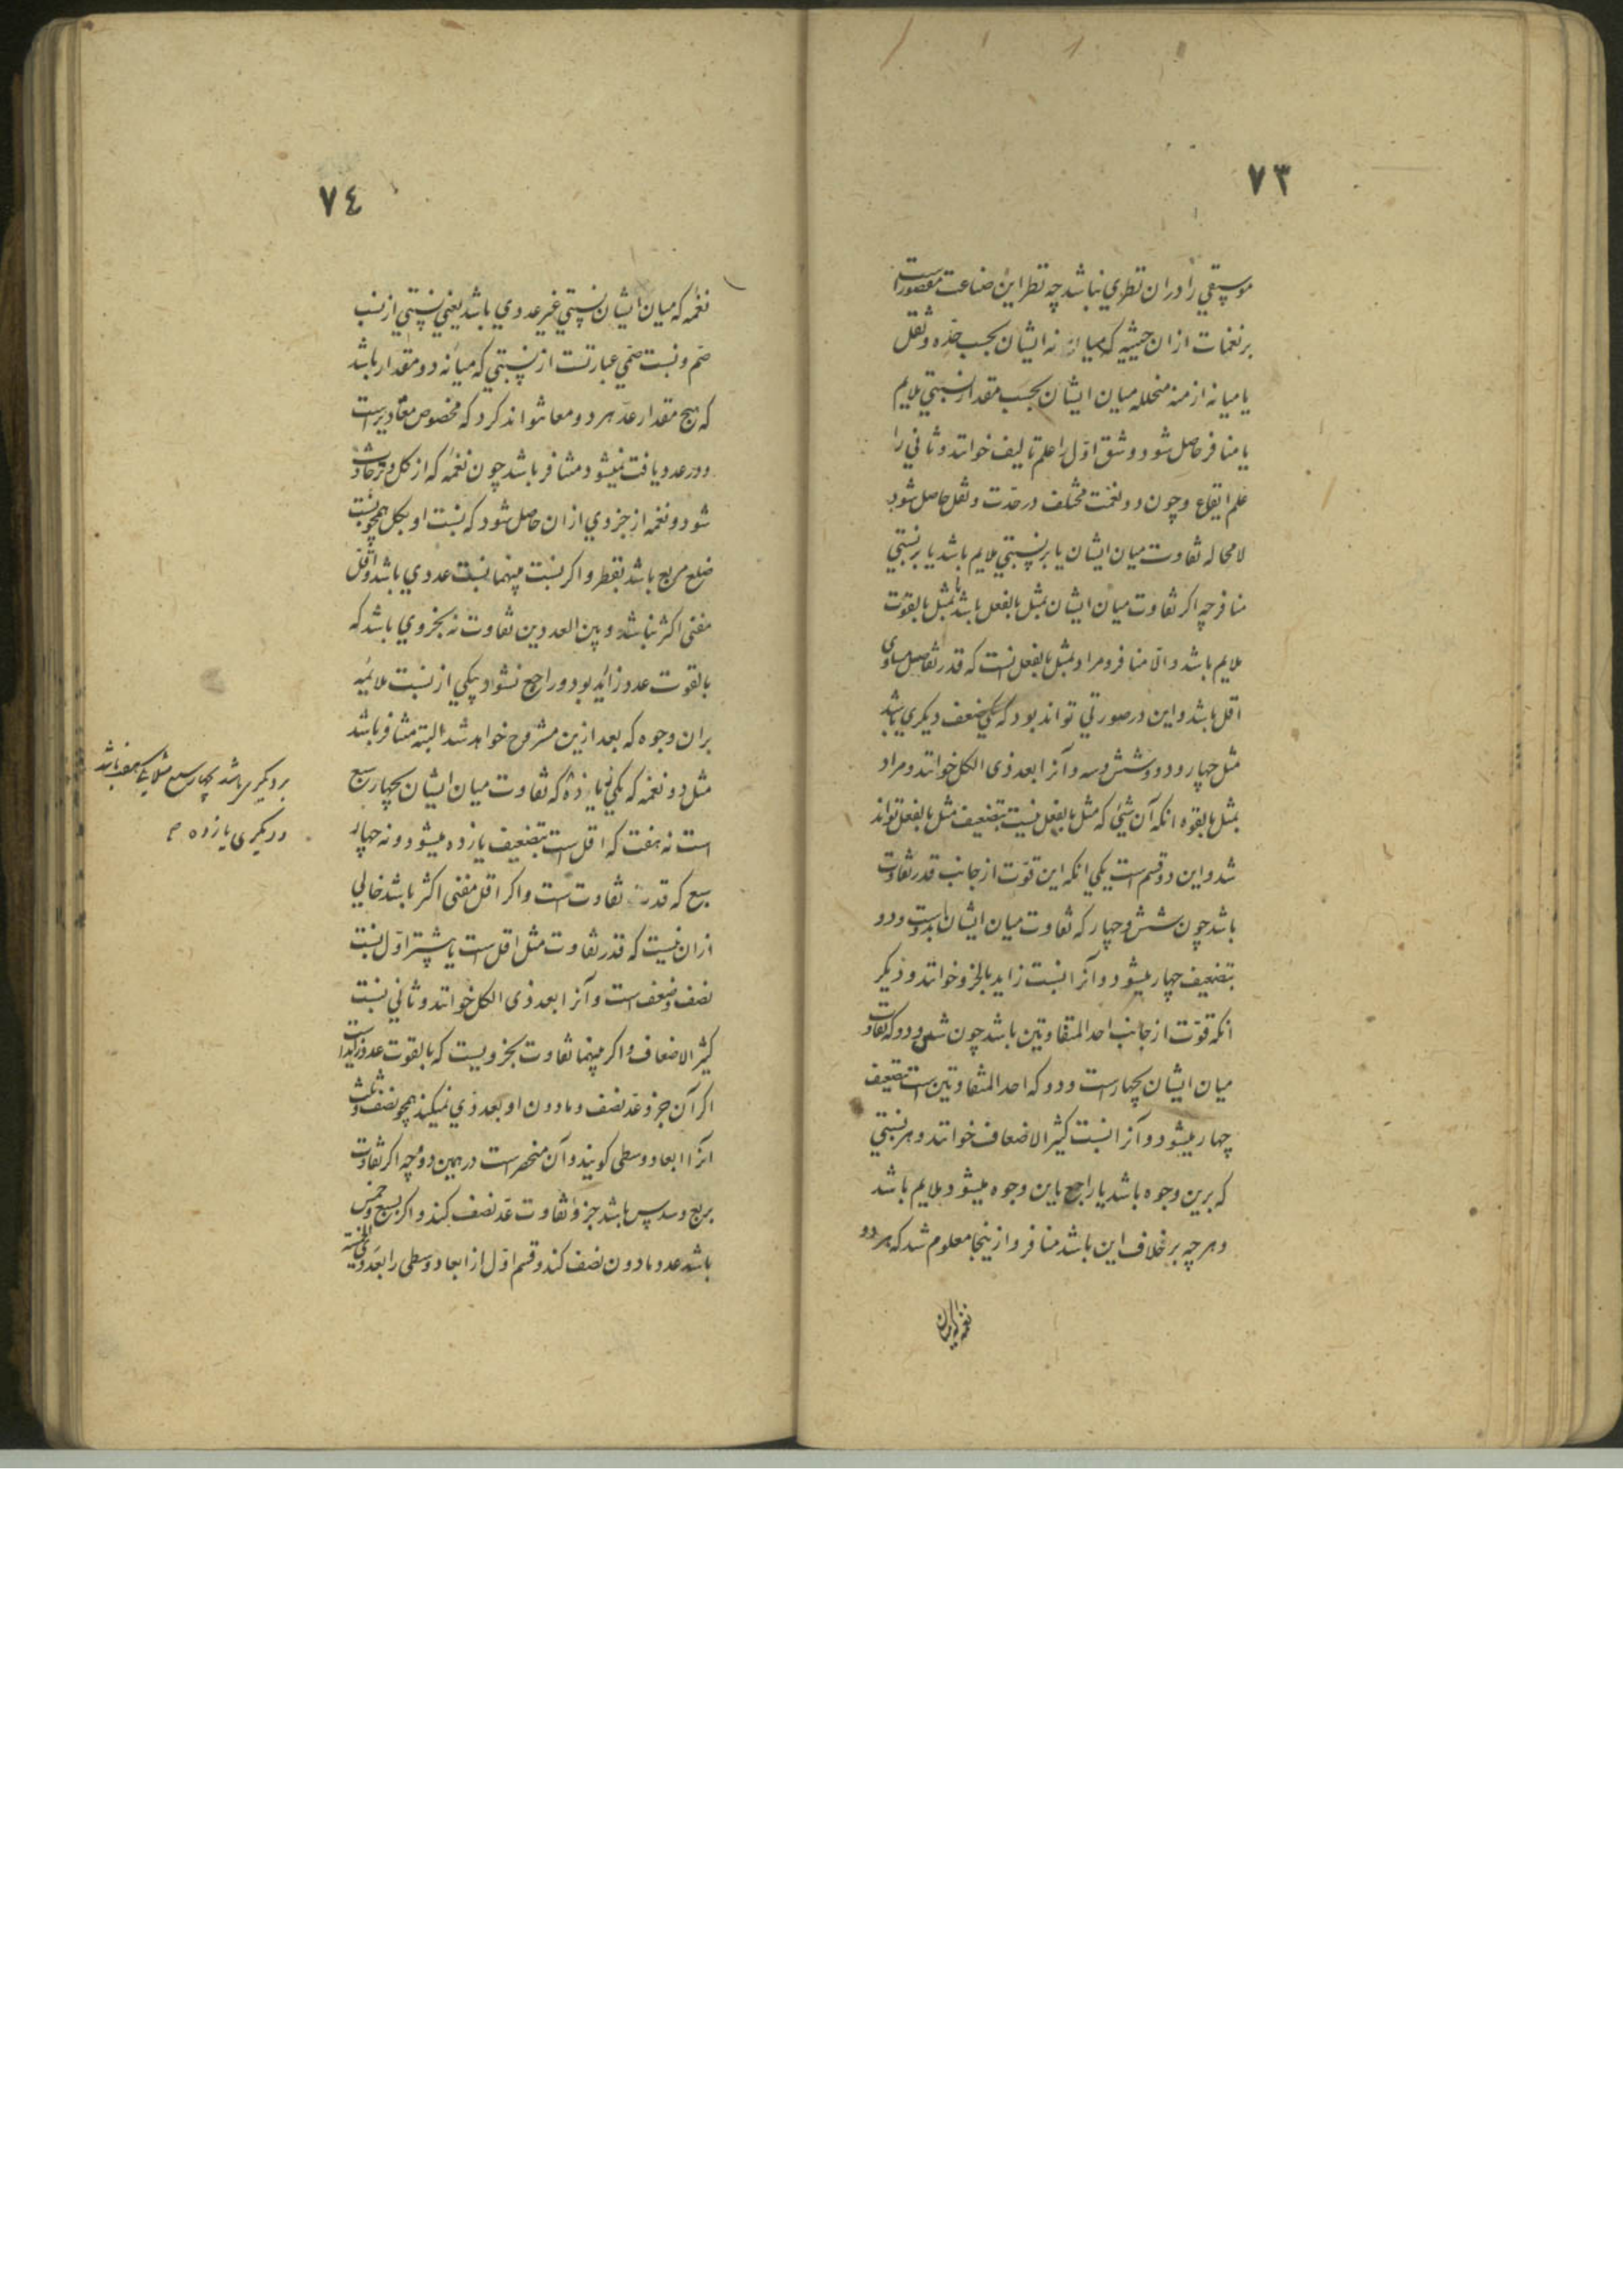 ٧٣
موسیقی را دران نظری نباشد چه نظر این صناعت مقصور است
بر نغمات ازان حیثیه که میانه ایشان بحسب حده و ثقل
یا میانه ازمنه متخلله میان ایشان بحسب مقدار نسبتی ملایم
یا منافر حاصل شود و شق اول را علم تالیف خوانند و ثانی را
علم ایقاع و چون دو نغمت مختلف در حدت و ثقل حاصل شود
لا محاله تفاوت میان ایشان یا بر نسبتی ملایم باشد یا بر نسبتی
منافر چه اگر تفاوت میان ایشان بمثل بالفعل باشد یا بمثل بالقوت
ملایم باشد و الا منافر و مراد بمثل بالفعل انست که قدر تفاصل مساوی
اقل باشد و این در صورتی تواند بود که یکی ضعف دیگری باشد
مثل چهار و دو و شش و سه و آنرا بعد ذی الکل خوانند و مراد
بمثل بالقوه انکه آن شئی که مثل بالفعل نیست بتضعیف مثل بالفعل تواند
شد و این دو قسم است یکی انکه این قوت از جانب قدر تفاوت
باشد چون شش و چهار که تفاوت میان ایشان بدوست و دو
بتضعیف چهار میشود و آنرا نسبت زاید بالجزو خوانند و دیگر
انکه قوت از جانب احد المتفاوتین باشد چون شش و دو که تفاوت
میان ایشان بچهار است و دو که احد المتفاوتین است بتضعیف
چهار میشود و آنرا نسبت کثیر الاضعاف خوانند و هر نسبتی
که برین وجوه باشد یا راجع باین وجوه میشود ملایم باشد
و هر چه بر خلاف این باشد منافر و ازینجا معلوم شد که هر دو
نغمه که میان
٧٤
نغمه که میان ایشان نسبتی غیر عددی باشد یعنی نسبتی از نسب
صم و نسبت صمی عبارتست از نسبتی که میانه دو مقدار باشد
که هیچ مقدار عد هر دو معا نتواند کرد که مخصوص مقادیر است
و در عدد یافت نمیشود متنافر باشد چون نغمه که از کل وتر حادث
شود و نغمه از جزوی ازان حاصل شود که نسبت او بکل همچو نسبت
ضلع مربع باشد بقطر و اگر نسبت بینهما نسبت عددی باشد و اقل
مفنی اکثر نباشد و بین العددین تفاوت نه بجزوی باشد که
بالقوت عدد زائد بود و راجع نشود بیکی از نسبت ملائمه
بران وجوه که بعد ازین مشروح خواهد شد البته متنافر باشد
مثل دو نغمه که یکی یازده که تفاوت میان ایشان بچهار سبع
است نه هفت که اقل است بتضعیف یازده میشود و نه چهار
سبع که قدر تفاوت است و اگر اقل مفنی اکثر باشد خالی
ازان نیست که قدر تفاوت مثل اقل است یا بیشتر اول نسبت
نصف و ضعف است و آنرا بعد ذی الکل خوانند و ثانی نسبت
کثیر الاضعاف و اگر بینهما تفاوت بجزویست که بالقوت عدد زاید است
اگر آن جزو عد نصف و مادون او بعد ذی نمیکند همچو نصف و ثلث
انرا ابعاد وسطی گویند و آن منحصر است در همین دو چه اگر تفاوت
بربع و سدس باشد جزو تفاوت عد نصف کند و اگر بسبع و خمس
باشد عد مادون نصف کند و قسم اول از ابعاد وسطی را بعد ذی الخمسة
بر دیگری باشد بچهار سبع مثلا یکی هفت باشد
و دیگری یازده